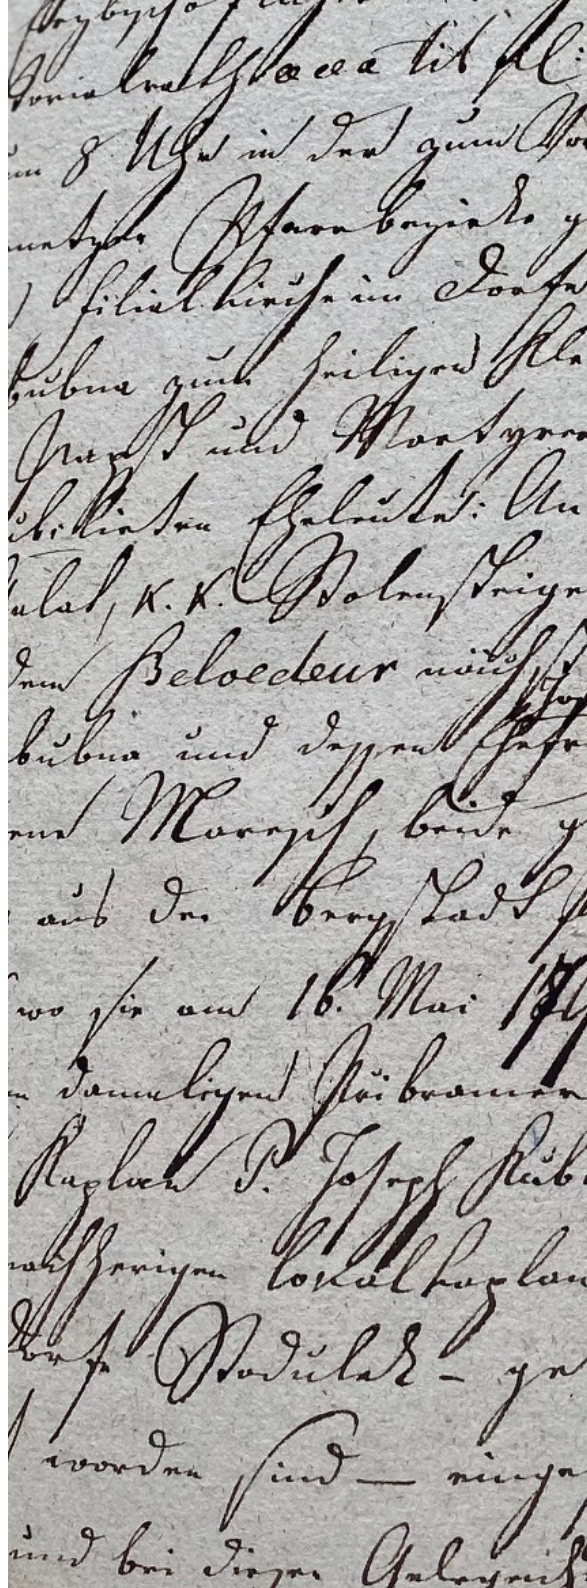 um 8 Uhr in der zum
metzer Pfarrbezirke g
Filialkirche im Dorfe
bubna zum heiligen Kle
Papst und Martyrer
ubilirten Eheleute: An
k. k. Stolensteige
dem Belvedeur nächst
bubna und dessen Ehefr
ene Maresch, beide g
aus der Bergstadt
wo sie am 16. Mai
n damaligen Pribramer
Kaplan P. Joseph Kub
nachherigen Lokalkaplan
Dorfe Stodulek – ge
worden sind — einge
und bei dieser Gelegenh